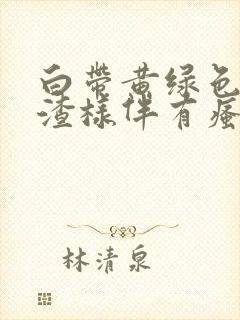 白带黄绿色
渣样伴有瘙
林清泉